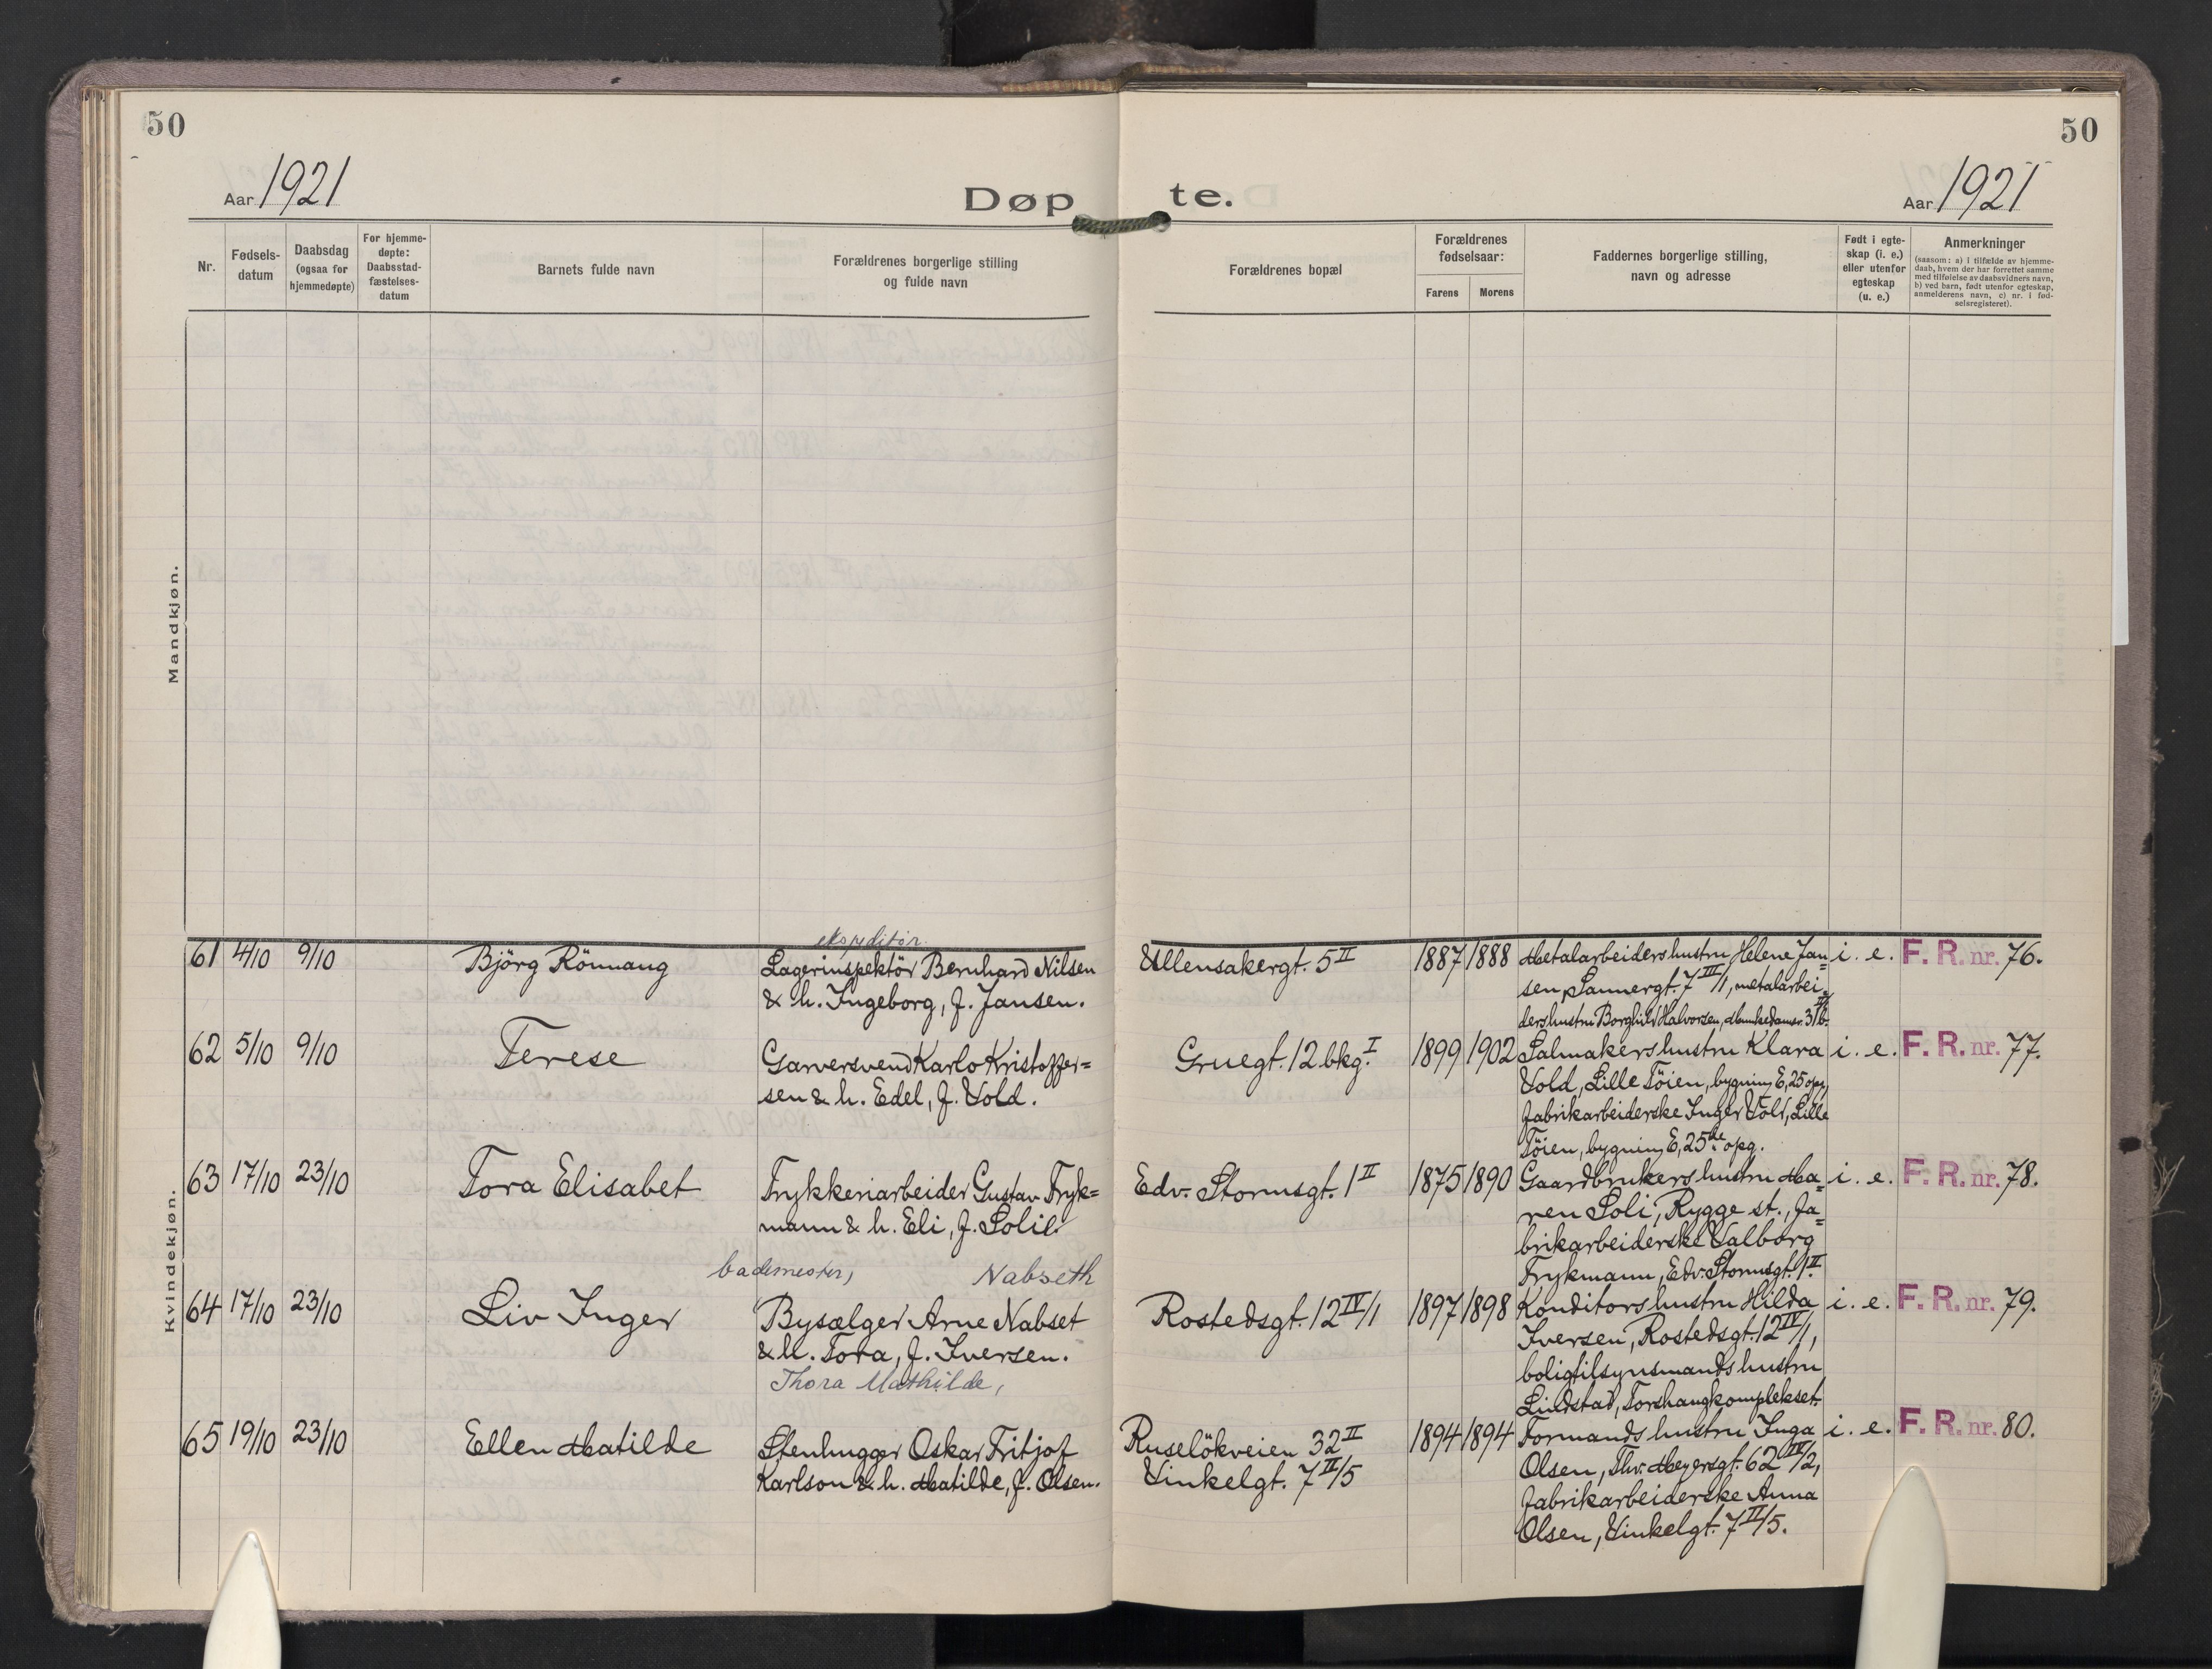 50
50
Aar 1921
Døp te.
Aar 1921
Nr.
Fødsels-
datum
Daabsdag
(ogsaa for
hjemmedøpte)
For hjemme-
døpte:
Daabsstad-
fæstelses-
datum
Barnets fulde navn
Forældrenes borgerlige stilling
og fulde navn
Forældrenes bopæl
Forældrenes
fødselsaar:
Farens
Morens
Faddernes borgerlige stilling,
navn og adresse
Født i egte-
skap (i. e.)
eller utenfor
egteskap
(u. e.)
Anmerkninger
(saasom: a) i tilfælde av hjemme-
daab, hvem der har forrettet samme
med tilføielse av daabsvidners navn,
b) ved barn, født utenfor egteskap,
anmelderens navn, c) nr. i fød-
selsregisteret).
Mandkjøn.
Kvindekjøn.
ekspeditør.
61 4/10 9/10 Björg Rönnaug Lagerinspektör Bernhard Nilsen Ullensakergt. 5 II 1887 1888 Metalarbeidershustru Helene Jan= i. e. F. R. nr. 76.
& h. Ingeborg, f. Jansen. sen, Sannergt. 7 III/1, metalarbei=
dershustru Borghild Halvorsen, Munkedamsv. 31b II
62 5/10 9/10 Terese Garversvend Karlo Kristoffer= Gruegt. 12 bkg. I 1899 1902 Salmakershustru Klara i. e. F. R. nr. 77.
sen & h. Edel, f. Vold. Vold, Lille Töien, bygning E, 25 opg,
fabrikarbeiderske Inger Vold, Lille
Töien, bygning E, 25de opg.
63 17/10 23/10 Tora Elisabet Trykkeriarbeider Gustav Tryk= Edv. Stormsgt. 1 II 1875 1890 Gaardbrukershustru Ma= i. e. F. R. nr. 78.
mann & h. Eli, f. Solie. ren Soli, Rygge st., fa=
brikarbeiderske Valborg
Trykmann, Edv. Stormsgt. 1 II
bademester, Nabseth
64 17/10 23/10 Liv Inger Bysælger Arne Nabset Rostedsgt. 12 IV/1 1897 1898 Konditorshustru Hilda i. e. F. R. nr. 79.
& h. Tora, f. Iversen. Iversen, Rostedsgt. 12 IV/1,
Thora Mathilde, boligtilsynsmandshustru
Lindstad, Torshaugkomplekset.
65 19/10 23/10 Ellen Matilde Stenhugger Oskar Fritjof Ruselökveien 32 II 1894 1894 Formandshustru Inga i. e. F. R. nr. 80.
Karlson & h. Matilde, f. Olsen. Vinkelgt. 7 II/5 Olsen, Thv. Meyersgt. 62 IV/2,
fabrikarbeiderske Anna
Olsen, Vinkelgt. 7 II/5.